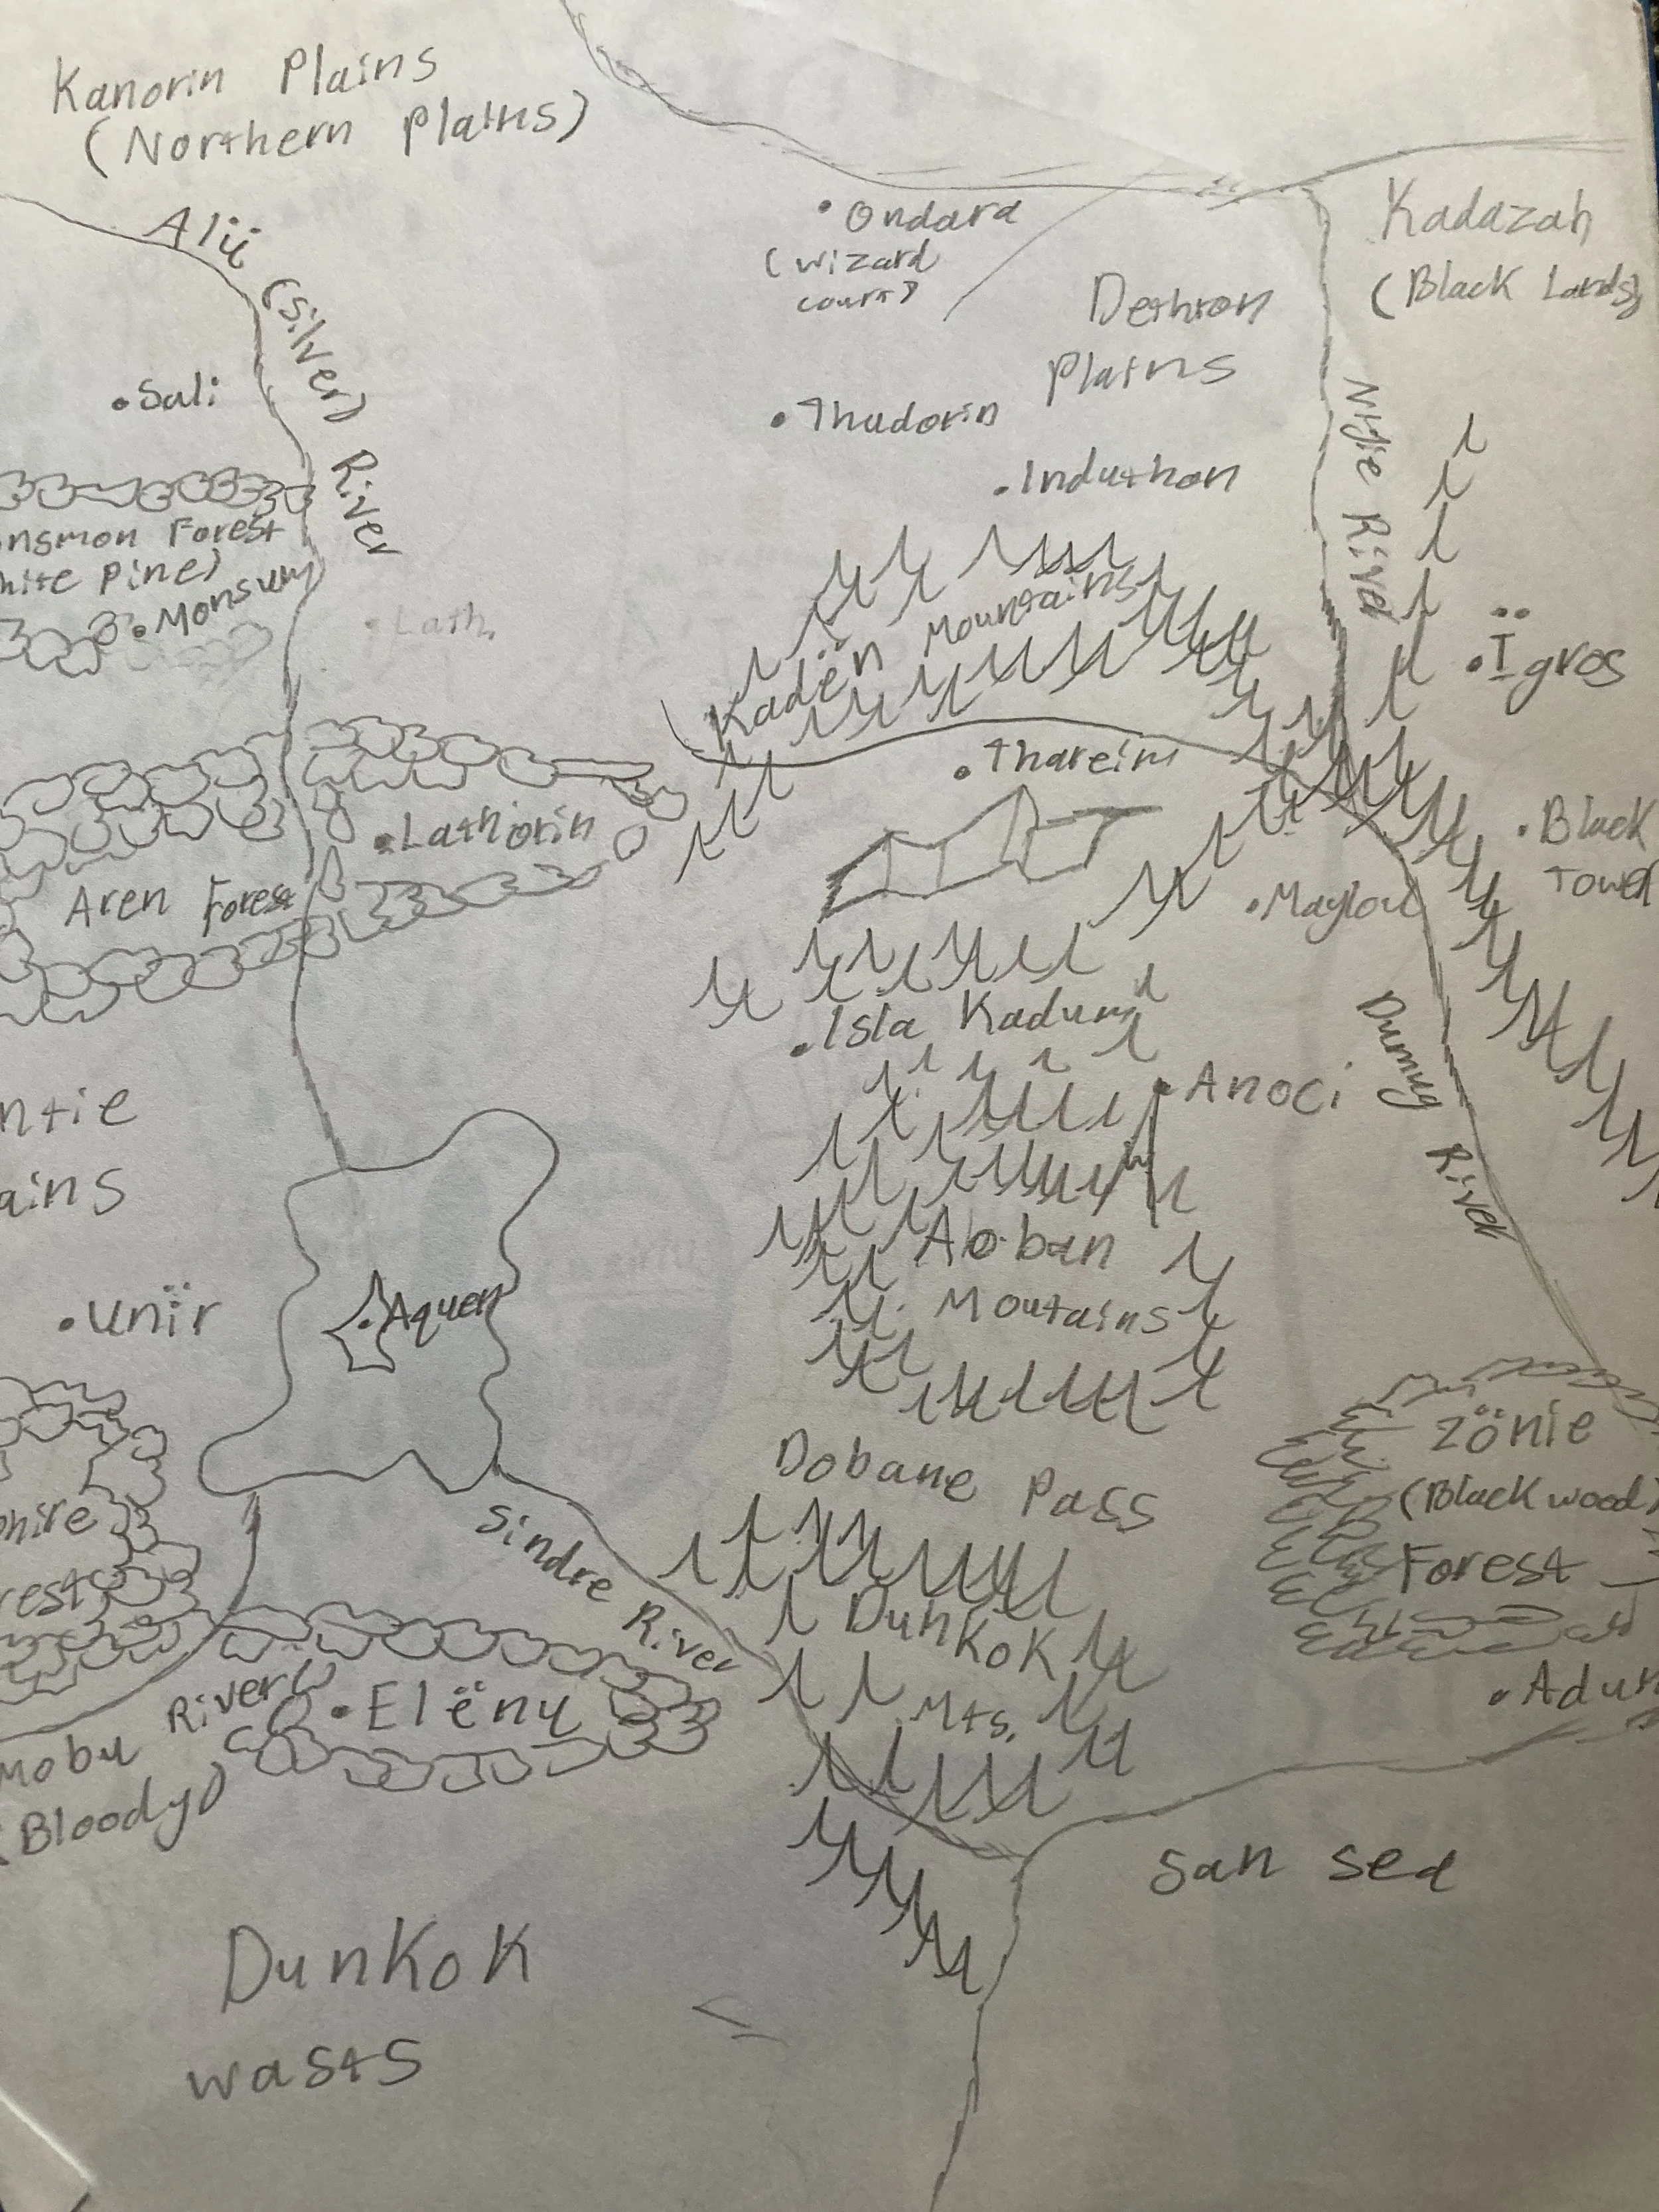 Kanorin Plains
(Northern Plains)
Alii (Silver) River
Ondara
(wizard
court)
Kadazah
(Black Lands)
Dethron
Plains
Sali
Thudorin
Induthon
River
nsmon Forest
hite Pine)
Monsum
Lath.
Kadën Mountains
Ïgros
Thareim
Lathiorin
Black
Tower
Aren Forest
Maylou
Isla Kadum
Anoci
Dumug River
ntie
ains
Aboban
Moutains
Unïr
Aquen
Zönie
(Blackwood)
Forest
Dobane Pass
Sindre River
phire
rest
Dunkok
Mts.
Elëny
Mobu River
(Bloody)
Adun
San Sea
Dunkok
wasts